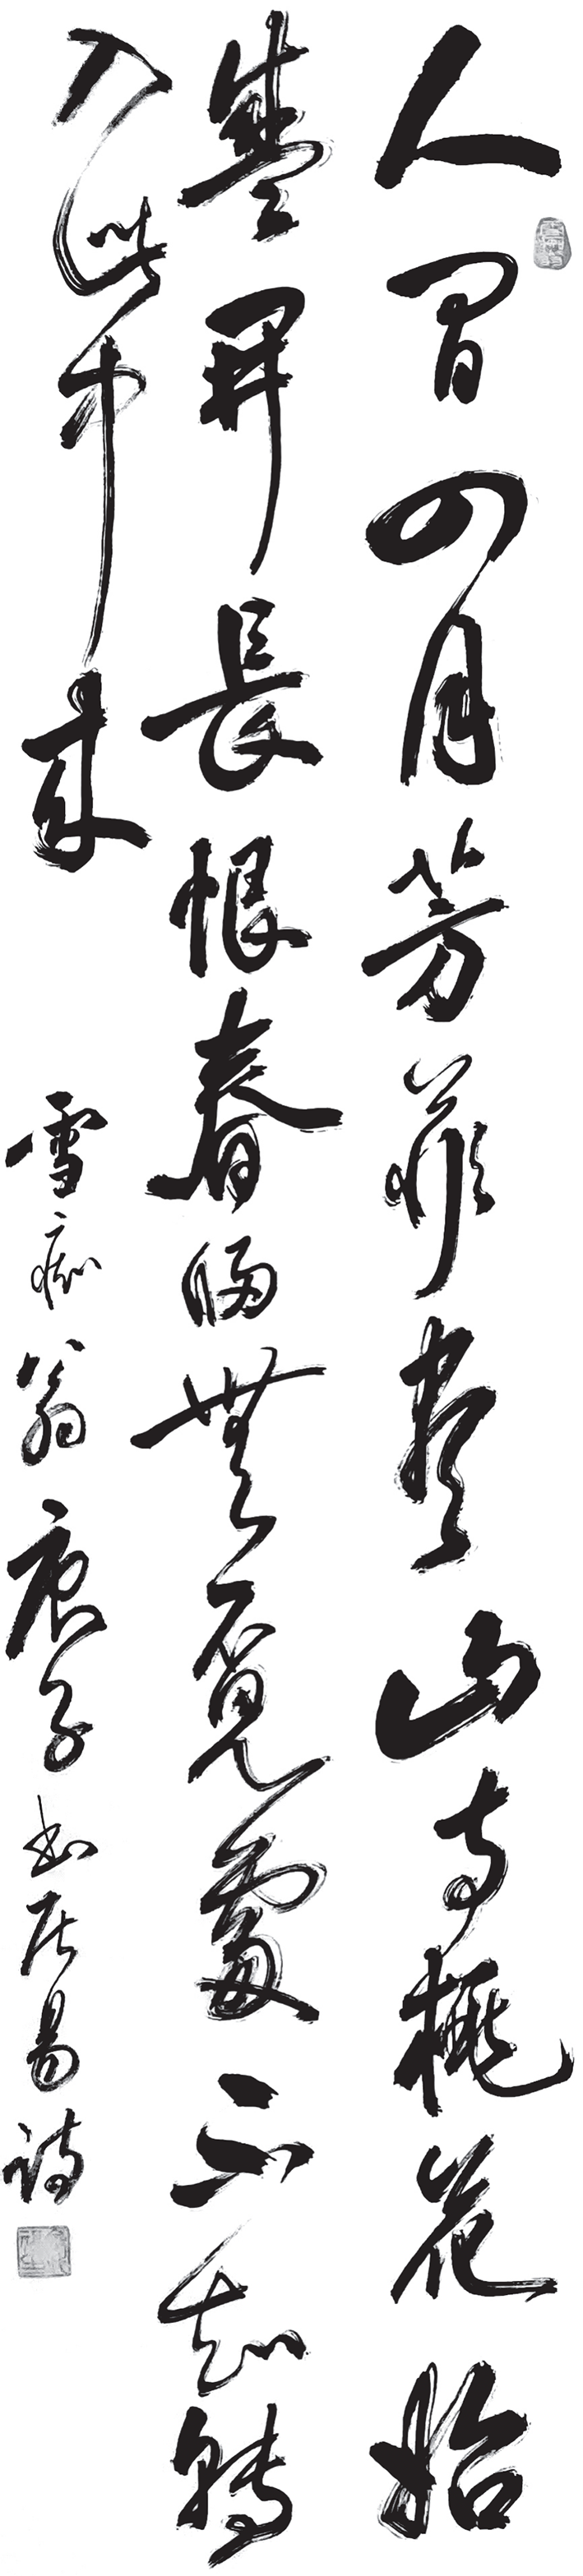 人間四月芳菲盡山寺桃花始
盛開長恨春歸無覓處不知轉
入此中來
雪痴翁庚子书居易詩